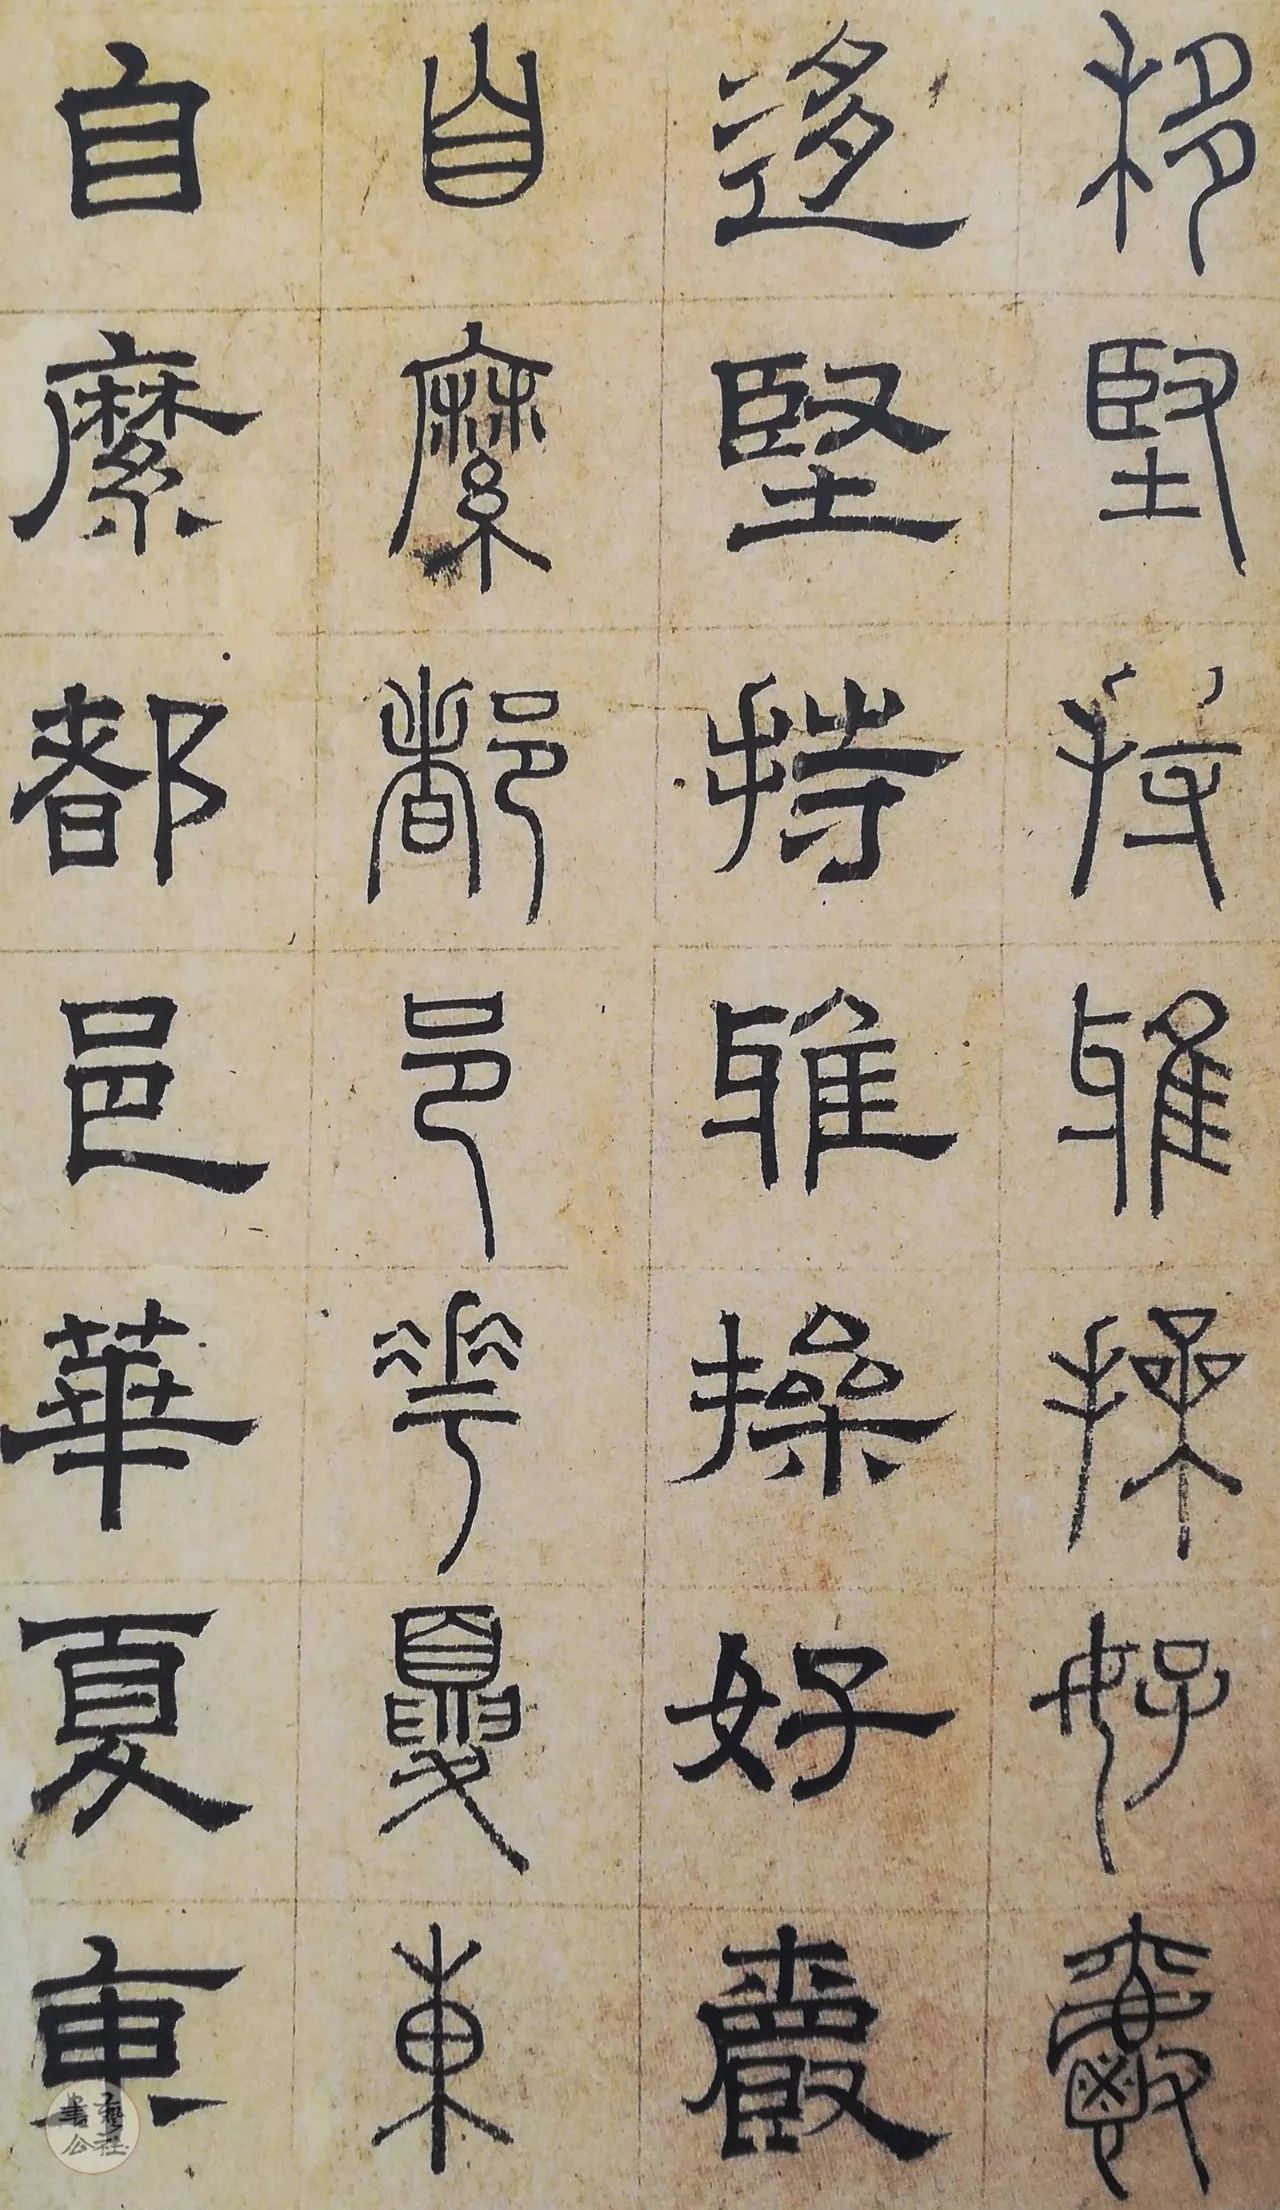 移堅持雅操好爵
迻堅持雅操好爵
自縻都邑華夏東
自縻都邑華夏東
書藝公社